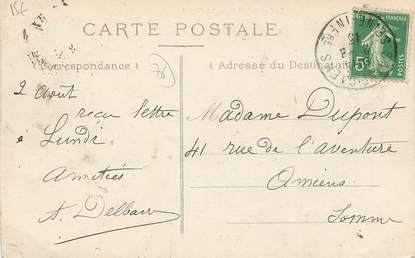 15E
CARTE POSTALE
Correspondance
76
Adresse du Destinataire
5c
POSTES
2 Août
reçu lettre
Lundi
Amitiés
A. Delbarre
Madame Dupont
41 rue de l'aventure
Amiens
Somme